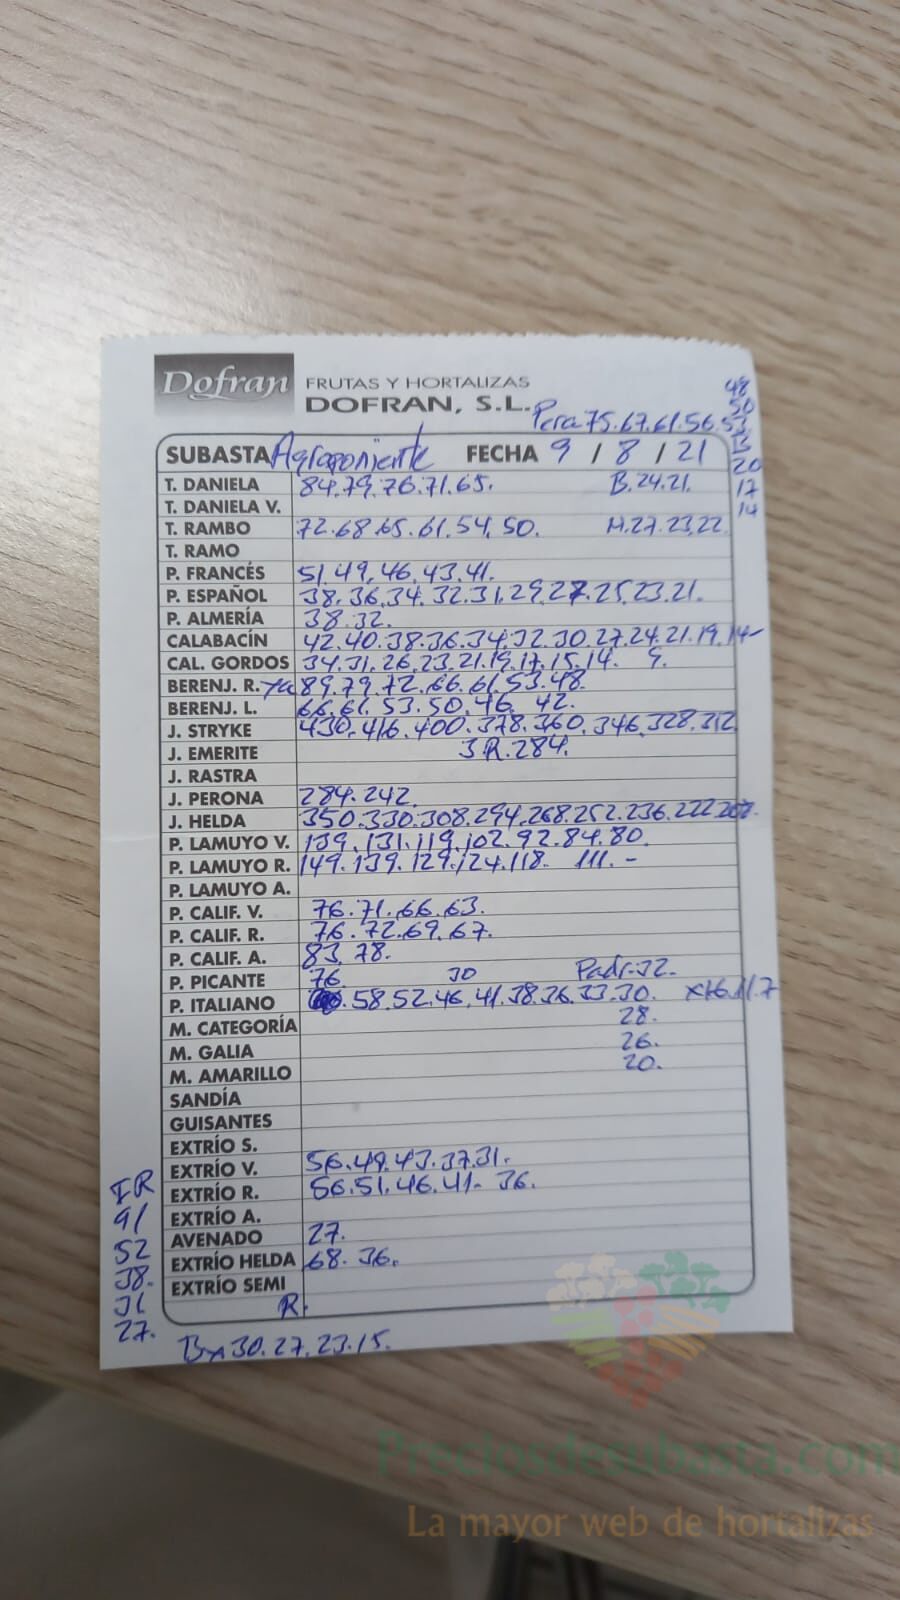 Dofran FRUTAS Y HORTALIZAS
DOFRAN, S.L.
Pera 75.67.61.56.53
48
50
13
20
17
14
SUBASTA Agroponiente FECHA 9 / 8 / 21
T. DANIELA 84.79.76.71.65. B.24.21.
T. DANIELA V.
T. RAMBO 72.68.65.61.54.50. M.27.23.22.
T. RAMO
P. FRANCÉS 51.49.46.43.41.
P. ESPAÑOL 38.36.34.32.31.29.27.25.23.21.
P. ALMERÍA 38.32.
CALABACÍN 42.40.38.36.34.32.30.27.24.21.19.14-
CAL. GORDOS 34.31.26.23.21.19.17.15.14. 9.
BERENJ. R. 89.79.72.66.61.53.48.
BERENJ. L. 66.61.53.50.46. 42.
J. STRYKE 430.416.400.378.360.346.328.312
J. EMERITE JR.284.
J. RASTRA
J. PERONA 284.242.
J. HELDA 350.330.308.294.268.252.236.222.207.
P. LAMUYO V. 139.131.119.102.92.84.80.
P. LAMUYO R. 149.139.129.124.118. 111.-
P. LAMUYO A.
P. CALIF. V. 76.71.66.63.
P. CALIF. R. 76.72.69.67.
P. CALIF. A. 83.78.
P. PICANTE 76. 30 Padr.32.
P. ITALIANO .58.52.46.41.38.36.33.30. x16.11.7
M. CATEGORÍA 28.
M. GALIA 26.
M. AMARILLO 20.
SANDÍA
GUISANTES
EXTRÍO S.
EXTRÍO V. 56.49.43.37.31.
EXTRÍO R. 56.51.46.41- 36.
EXTRÍO A.
AVENADO 27.
EXTRÍO HELDA 68.36.
EXTRÍO SEMI
R.
IR
91
52
38.
31
27.
Bx30.27.23.15.
Preciosdesubasta.com
La mayor web de hortalizas